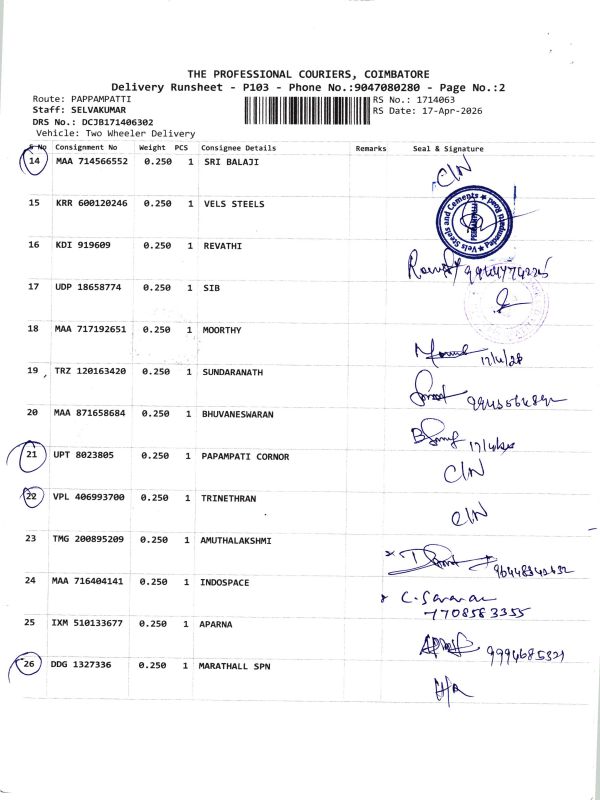 THE PROFESSIONAL COURIERS, COIMBATORE
Delivery Runsheet - P103 - Phone No.:9047080280 - Page No.:2
Route: PAPPAMPATTI RS No.: 1714063
Staff: SELVAKUMAR RS Date: 17-Apr-2026
DRS No.: DCJB171406302
Vehicle: Two Wheeler Delivery
S No Consignment No Weight PCS Consignee Details Remarks Seal & Signature
14 MAA 714566552 0.250 1 SRI BALAJI C/N
15 KRR 600120246 0.250 1 VELS STEELS
Vels Steels and Cements ★ Pappampatti Road ★
16 KDI 919609 0.250 1 REVATHI
17 UDP 18658774 0.250 1 SIB
18 MAA 717192651 0.250 1 MOORTHY
19 TRZ 120163420 0.250 1 SUNDARANATH
20 MAA 871658684 0.250 1 BHUVANESWARAN
21 UPT 8023805 0.250 1 PAPAMPATI CORNOR C/N
22 VPL 406993700 0.250 1 TRINETHRAN C/N
23 TMG 200895209 0.250 1 AMUTHALAKSHMI
24 MAA 716404141 0.250 1 INDOSPACE C. Saravanan
7708583355
25 IXM 510133677 0.250 1 APARNA 9994685321
26 DDG 1327336 0.250 1 MARATHALL SPN H/A